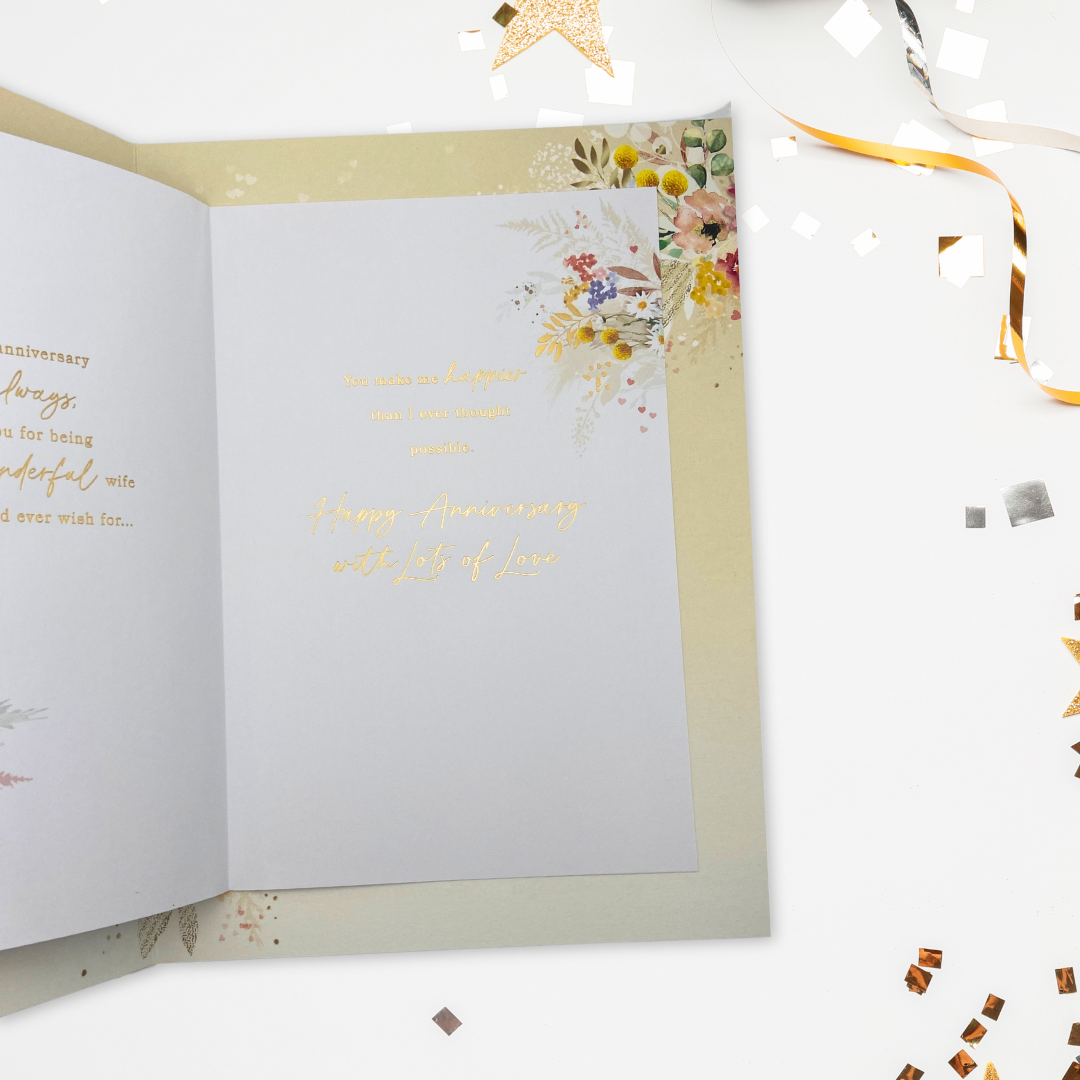 anniversary
lways,
ou for being
nderful wife
d ever wish for...
You make me happier
than I ever thought
possible.
Happy Anniversary
with Lots of Love